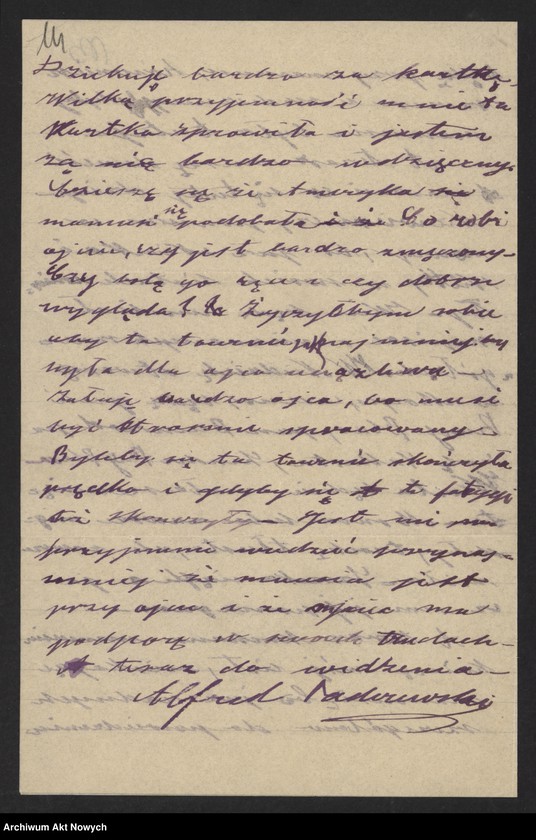 III
Dziekuję bardzo za kartkę.
Wilką przyjemność mnie ta
kartka zprawiła i jestem
za nię bardzo wdzięczny.
Czieszę się że Ameryka się
mamusi się podobała Co robi
ojcie, czy jest bardzo zmęczony–
Czy bolą go ręce i czy dobrze
wygląda Życzyłbym sobie
aby ta tournée najmniej by
była dla ojca uciążliwa –
Żałuję bardzo ojca, bo musi
być strasznie spracowany
Byleby się ta tournée skończyła
prędko i gdyby się te
też skonczyły – Jest mi
przyjemnie wiedzieć przynaj-
mniej że mamusia jest
przy ojcu i że ojciec ma
podporę w swoich trudach–
A teraz do widzenia –
Alfred Paderewski
Archiwum Akt Nowych